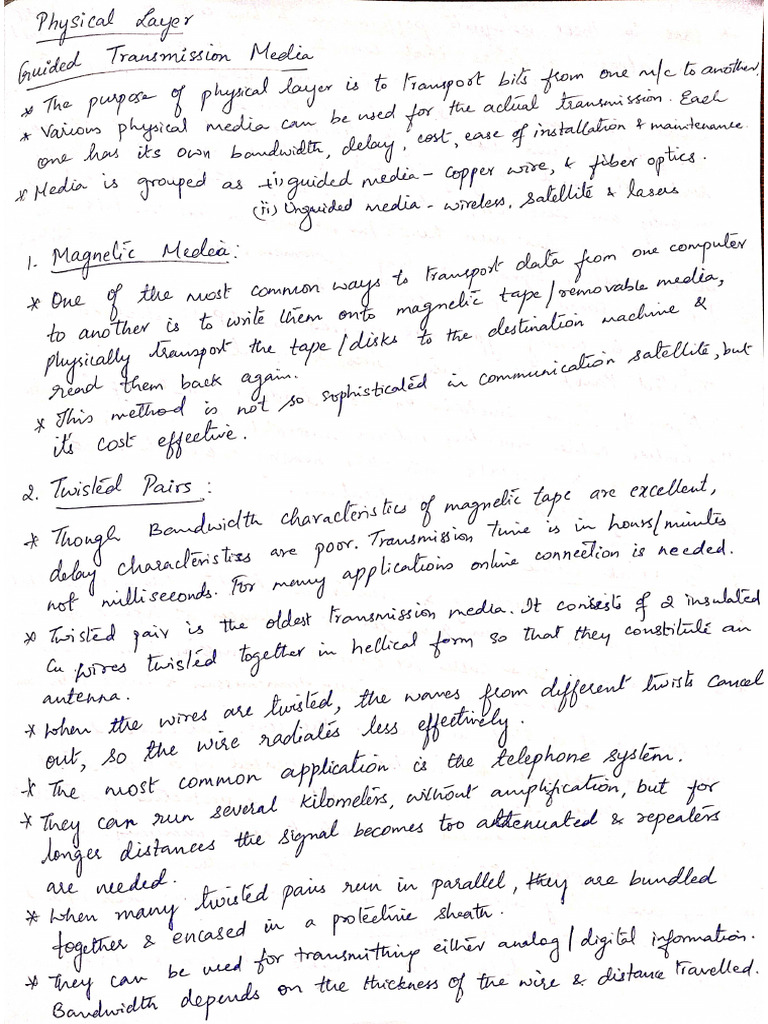 Physical Layer
Guided Transmission Media
* The purpose of physical layer is to transport bits from one m/c to another.
* Various physical media can be used for the actual transmission. Each
one has its own bandwidth, delay, cost, ease of installation & maintenance
* Media is grouped as (i) guided media - copper wire, & fiber optics.
(ii) Unguided media - wireless, satellite & lasers
1. Magnetic Media:
* One of the most common ways to transport data from one computer
to another is to write them onto magnetic tape/removable media,
physically transport the tape/disks to the destination machine &
read them back again.
* This method is not so sophisticated in communication satellite, but
it's cost effective.
2. Twisted Pairs:
* Though Bandwidth characteristics of magnetic tape are excellent,
delay characteristics are poor. Transmission time is in hours/minutes
not milliseconds. For many applications online connection is needed.
* Twisted pair is the oldest transmission media. It consists of 2 insulated
Cu wires twisted together in hellical form so that they constitute an
antenna.
* When the wires are twisted, the waves from different twists cancel
out, so the wire radiates less effectively.
* The most common application is the telephone system.
* They can run several kilometers, without amplification, but for
longer distances the signal becomes too attenuated & repeaters
are needed.
* When many twisted pairs run in parallel, they are bundled
together & encased in a protective sheath.
* They can be used for transmitting either analog/digital information.
Bandwidth depends on the thickness of the wire & distance travelled.